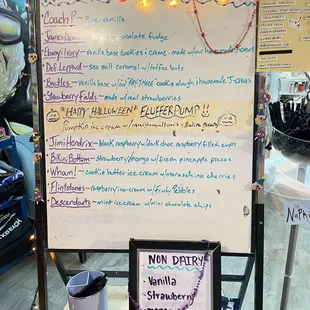 Coach P - Pure vanilla
James Dean - chocolate fudge
Ebony & Ivory - vanilla base cookies & creme - made w/our housemade J-creos
Def Leppard - sea salt caramel w/toffee bits
Beatles - vanilla base w/our HANDMADE cookie dough & housemade J-creos
Strawberry Fields - made w/real strawberries
"HAPPY HALLOWEEN" FLUFFERPUMP !!
Pumpkin ice cream w/marshmallow
Jimi Hendrix - black raspberry w/dark choc. raspberry filled cups
Bikini Bottom - strawberry/mango w/fresh pineapple pieces
Wham! - cookie butter ice cream w/maraschino cherries
Flintstones - raspberry ice cream w/fruity Pebbles
Descendants - mint ice cream w/mini chocolate chips
NON DAIRY
• Vanilla
• Strawberry